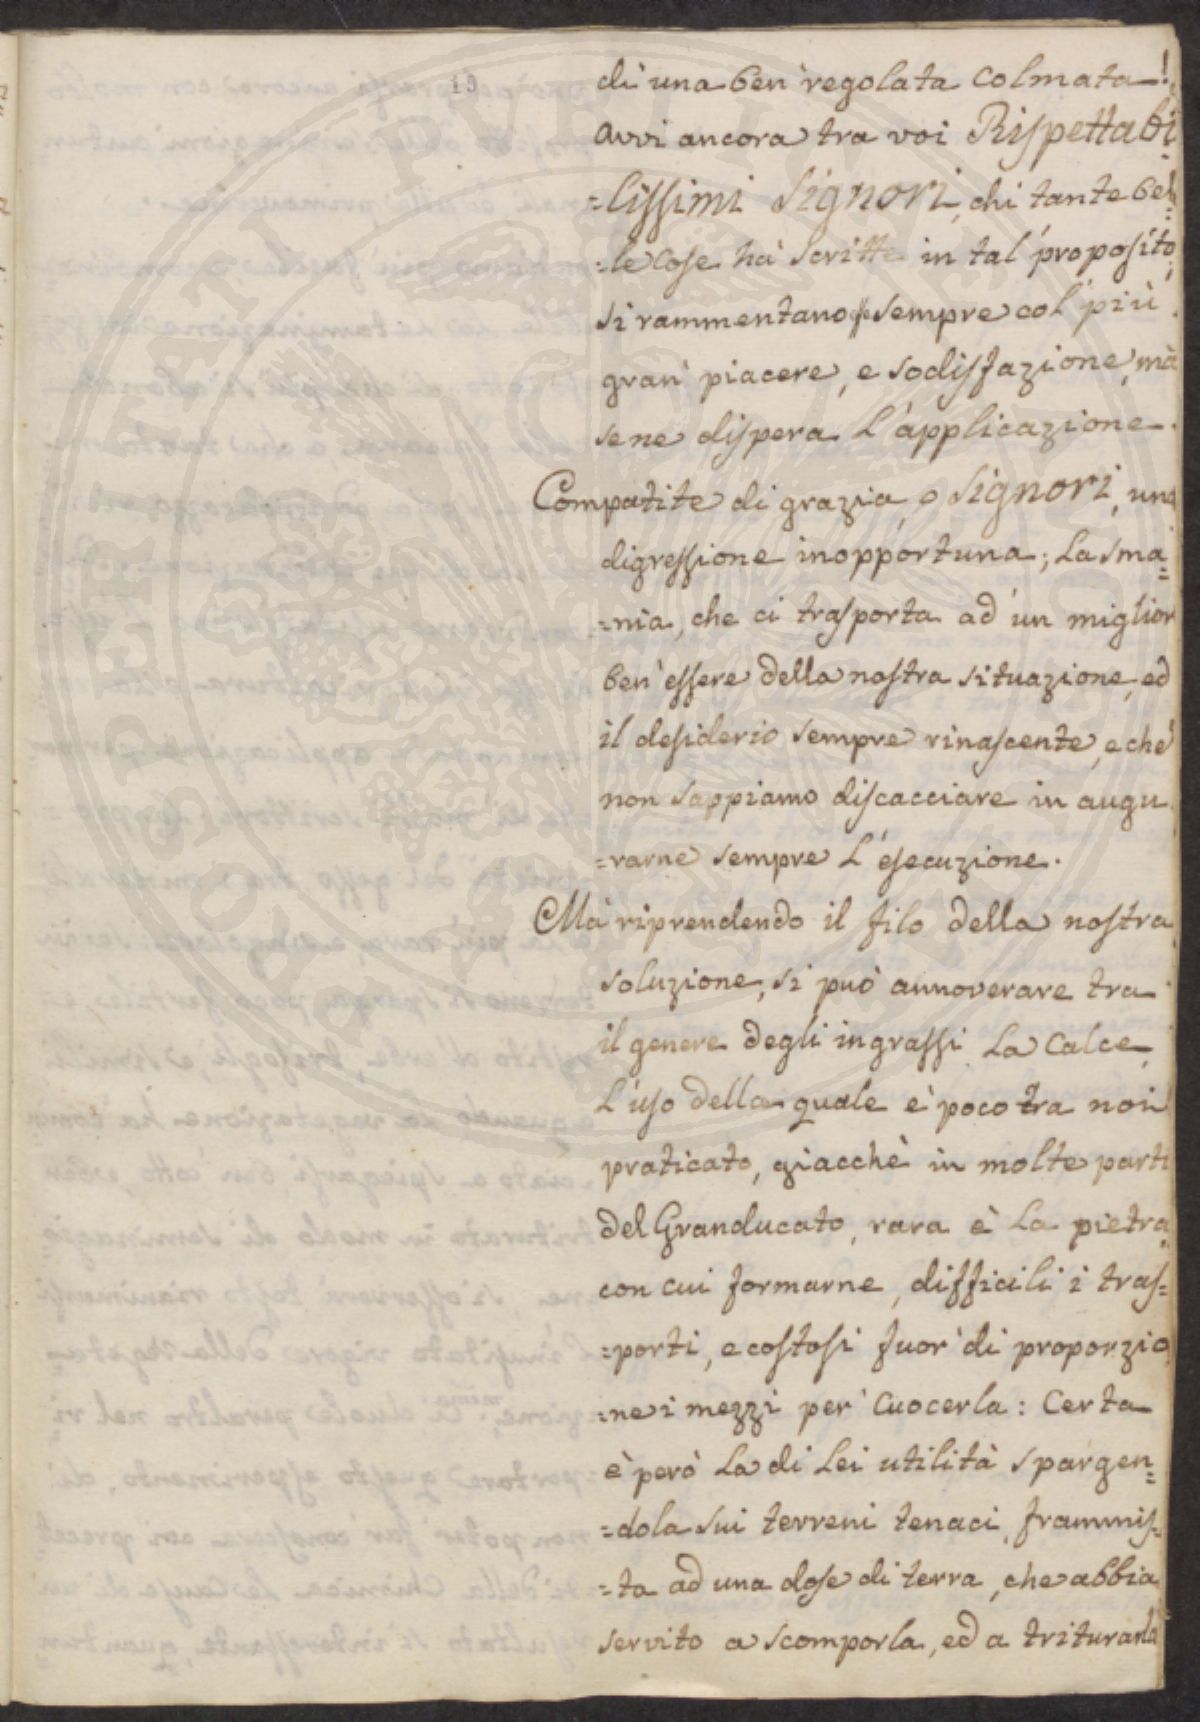 19
di una ben' regolata Colmata!
avvi ancora tra voi Rispettabi
=lissimi Signori, chi tante bel=
=le cose hà scritte in tal' proposito;
si rammentano sempre col' più
gran' piacere, e sodisfazione, mà
se ne dispera L'applicazione.
Compatite di grazia, o Signori, una
digressione inopportuna; La sma=
=nia, che ci trasporta ad un miglior
ben'essere della nostra situazione, ed
il desiderio sempre rinascente, e che
non sappiamo discacciare in augu
=rarne sempre L'esecuzione.
Mà riprendendo il filo della nostra
soluzione, si può annoverare tra
il genere degli ingrassi La Calce,
L'uso della quale è poco tra noi
praticato, giacchè in molte parti
del Granducato, rara è La pietra
con cui formarne, difficili i tras=
=porti, e costosi fuor' di proporzio
=ne i mezzi per' Cuocerla: Certa
è però La di Lei utilità spargen=
=dola sui terreni tenaci, frammis=
=ta ad una dose di terra, che abbia
servito a scomporla, ed a triturarla